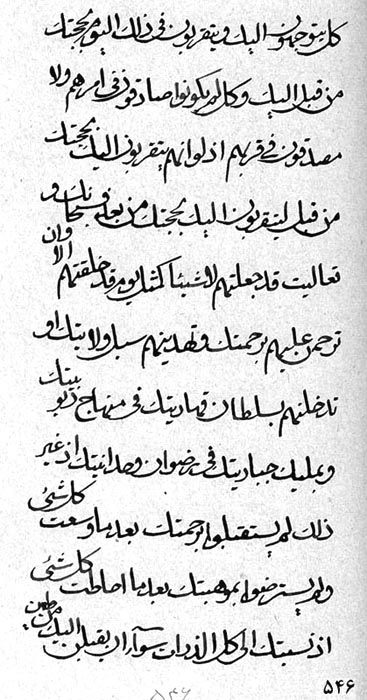 كل يتوجهون اليك ويتقربون في ذلك اليوم بحجتك
من قبل اليك وكل لم يكونوا صادقون في امرهم ولا
مصدقون في قربهم اذ لو انهم يتقربون اليك بحجتك
من قبل ليتقربون اليك بحجتك من بعد فسبحانك و
تعاليت قد جعلتهم لا شيئا كمثل يوم قد خلقتهم الا وان
ترحمن عليهم برحمتك وتهدينهم سبل ولايتك او
تدخلنهم بسلطان قهاريتك في منهاج ربوبيتك
وبمليك جباريتك في رضوان وحدانيتك اذ غير
ذلك لم يستقبلوا برحمتك بعد ما وسعت كل شئ
ولم يسترضوا بموهبتك بعد ما احاطت كل شئ
اذ نسبتك الى كل الذرات سواء ان يقبلن اليك من
۵۴۶
۵۴۶